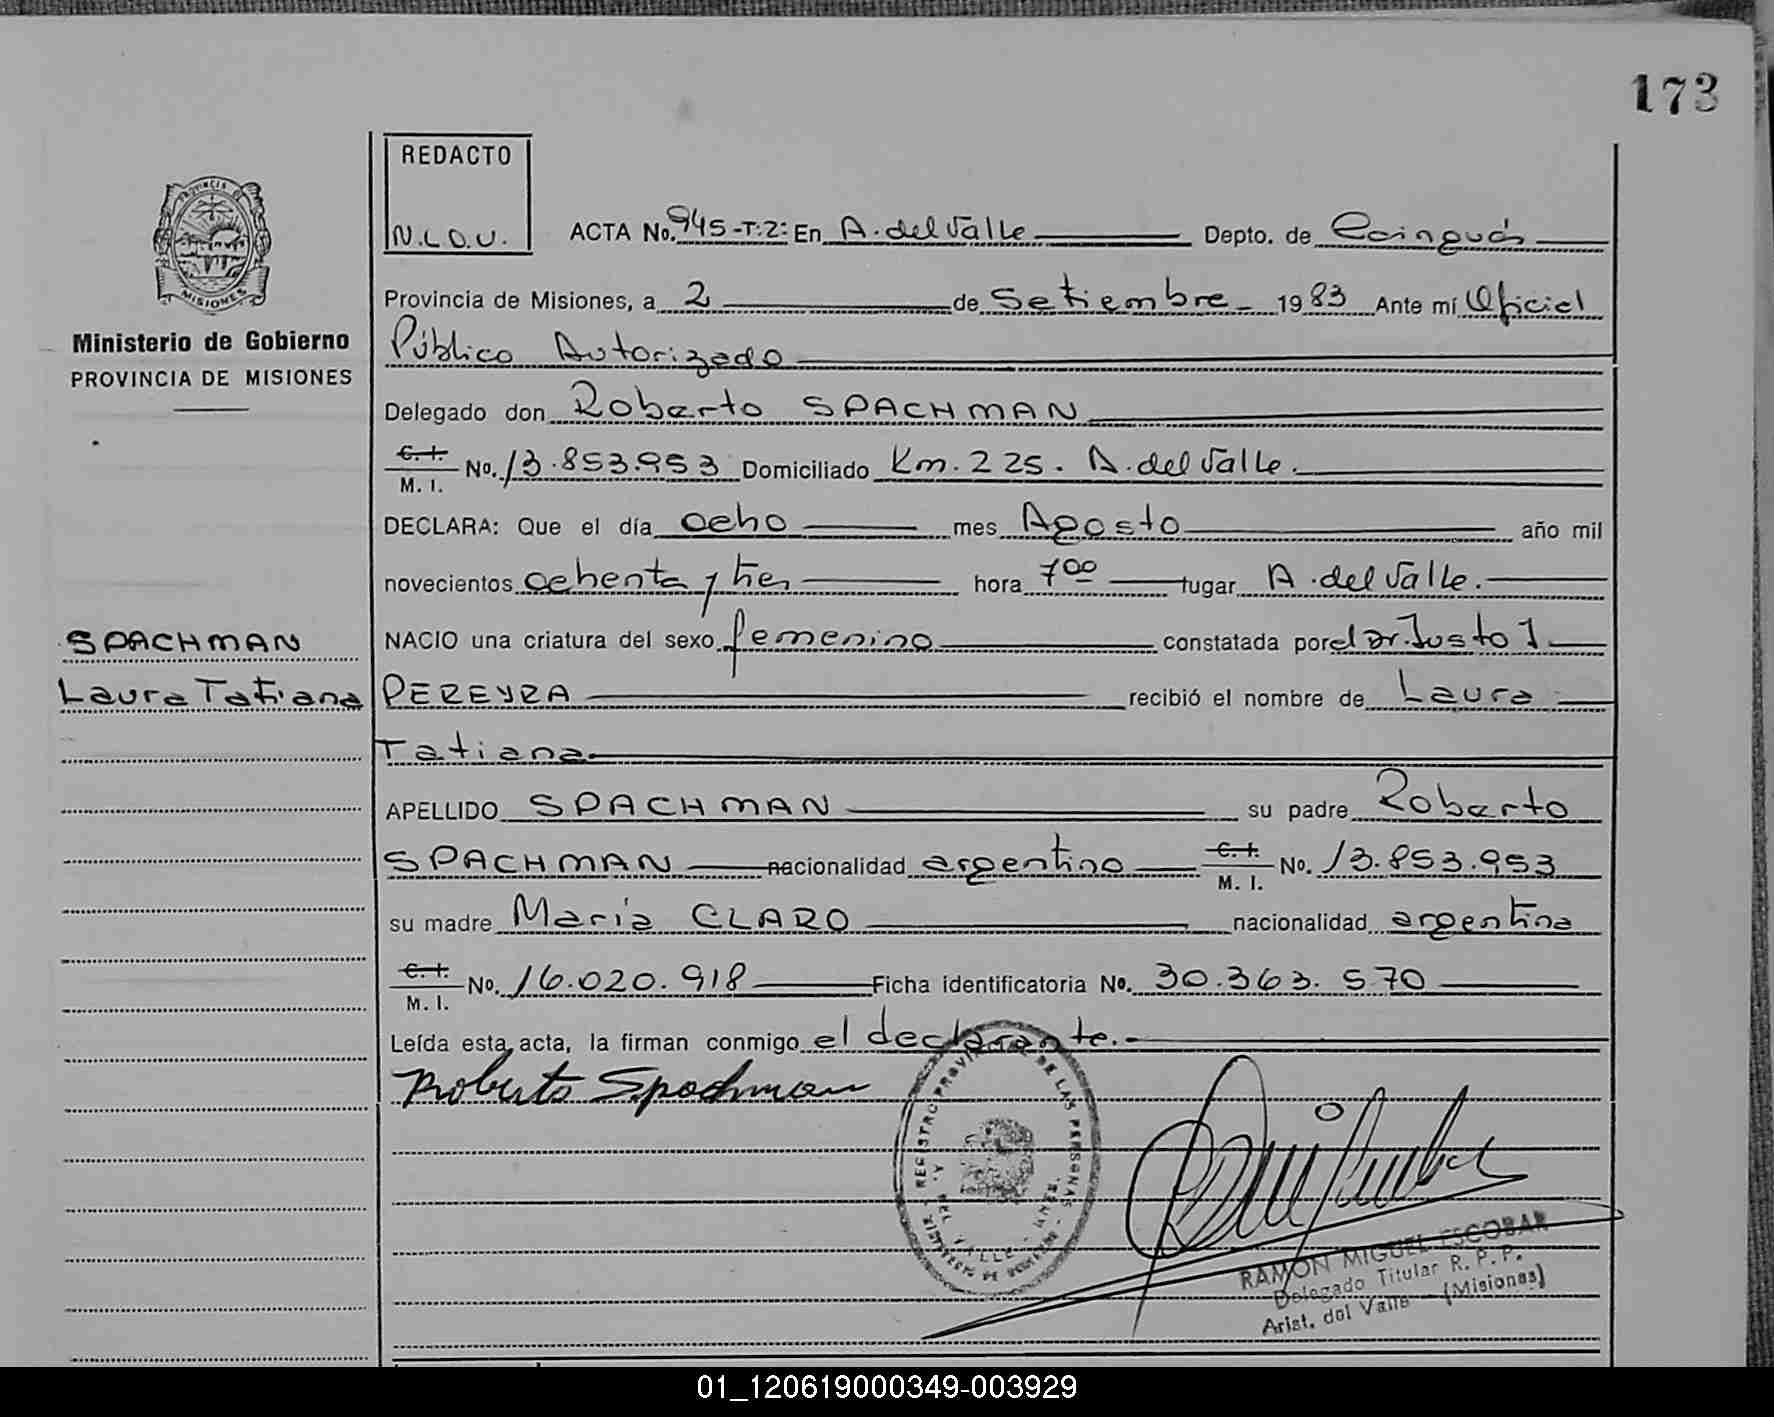 173
REDACTO
N.L.D.U.
ACTA No. 945-T:2: En A. del Valle Depto. de Cainguás
Provincia de Misiones, a 2 de Setiembre 1983 Ante mí Oficial
Público Autorizado
Delegado don Roberto SPACHMAN
C.I. M. I. No. 13.853.953 Domiciliado Km. 225. A. del Valle.
DECLARA: Que el día ocho mes Agosto año mil
novecientos ochenta y tres hora 7⁰⁰ lugar A. del Valle.
NACIO una criatura del sexo femenino constatada por el Dr. Justo J
PEREYRA recibió el nombre de Laura
Tatiana
APELLIDO SPACHMAN su padre Roberto
SPACHMAN nacionalidad argentino C.I. M. I. No. 13.853.953
su madre María CLARO nacionalidad argentina
C.I. M. I. No. 16.020.918 Ficha identificatoria No. 30.363.570
Leída esta acta, la firman conmigo el declarante.-
Roberto Spachman
PROVINCIA DE
MISIONES
Ministerio de Gobierno
PROVINCIA DE MISIONES
SPACHMAN
Laura Tatiana
REGISTRO PROVINCIAL DE LAS PERSONAS
A. DEL VALLE
RAMON MIGUEL ESCOBAR
Delegado Titular R. P. P.
Arist. del Valle - (Misiones)
01_120619000349-003929